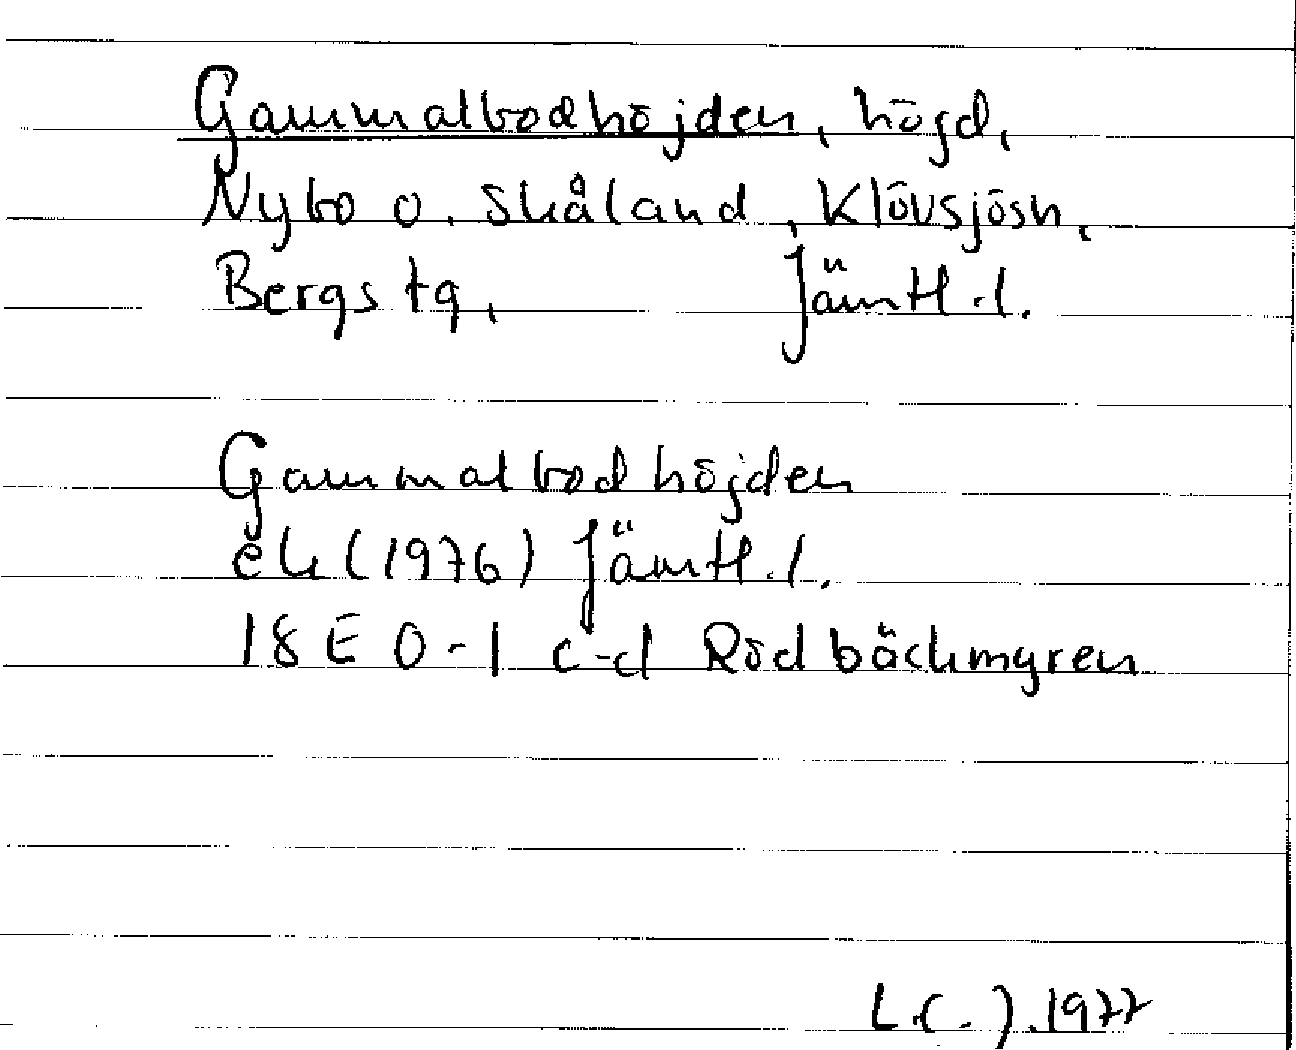 Gammalbodhöjden, höjd,
Nybo o. Skåland, Klövsjösn,
Bergs tg, Jämtl.l.
Gammalbodhöjden
ek (1976) Jämtl.l.
18E 0-1 c-d Rödbäckmyren
L.(.).1977